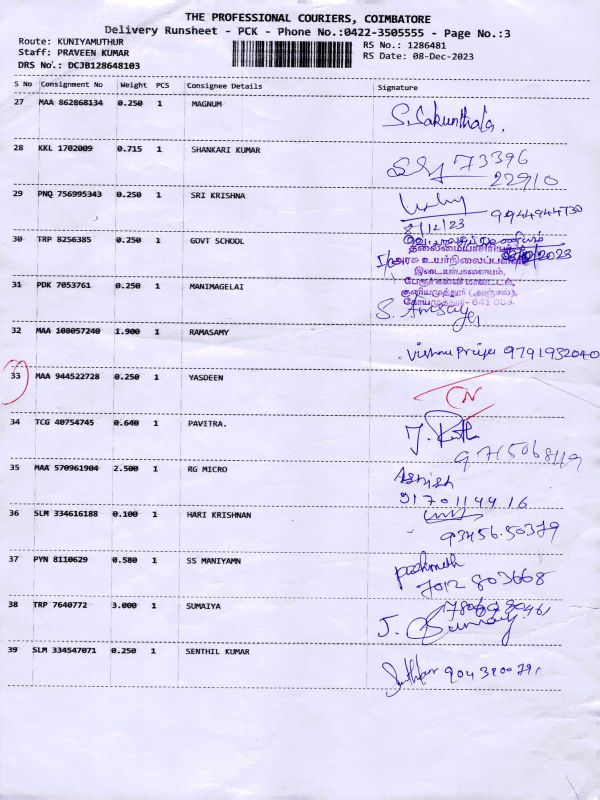 THE PROFESSIONAL COURIERS, COIMBATORE
Delivery Runsheet - PCK - Phone No.:0422-3505555 - Page No.:3
Route: KUNIYAMUTHUR
RS No.: 1286481
Staff: PRAVEEN KUMAR
RS Date: 08-Dec-2023
DRS No.: DCJB128648103
S No Consignment No Weight PCS Consignee Details Signature
27 MAA 862868134 0.250 1 MAGNUM
S. Sakunthala.
28 KKL 1702009 0.715 1 SHANKARI KUMAR
73396
22910
29 PNQ 756995343 0.250 1 SRI KRISHNA
9944944730
8/12/23
30 TRP 8256385 0.250 1 GOVT SCHOOL
தலைமையாசிரியர்
அரசு உயர்நிலைப்பள்ளி
இடையர்பாளையம்,
31 PDK 7053761 0.250 1 MANIMAGELAI
குனியமுத்தூர் (அஞ்சல்),
கோயமுத்தூர் - 641 008.
32 MAA 108057240 1.900 1 RAMASAMY
Vishnu Priya 9791932040
33 MAA 944522728 0.250 1 YASDEEN
CN
34 TCG 40754745 0.640 1 PAVITRA.
35 MAA 570961904 2.500 1 RG MICRO
Ashish
9170114416
36 SLM 334616188 0.100 1 HARI KRISHNAN
93456.50379
37 PYN 8110629 0.580 1 SS MANIYAMN
7012 803668
38 TRP 7640772 3.000 1 SUMAIYA
39 SLM 334547071 0.250 1 SENTHIL KUMAR